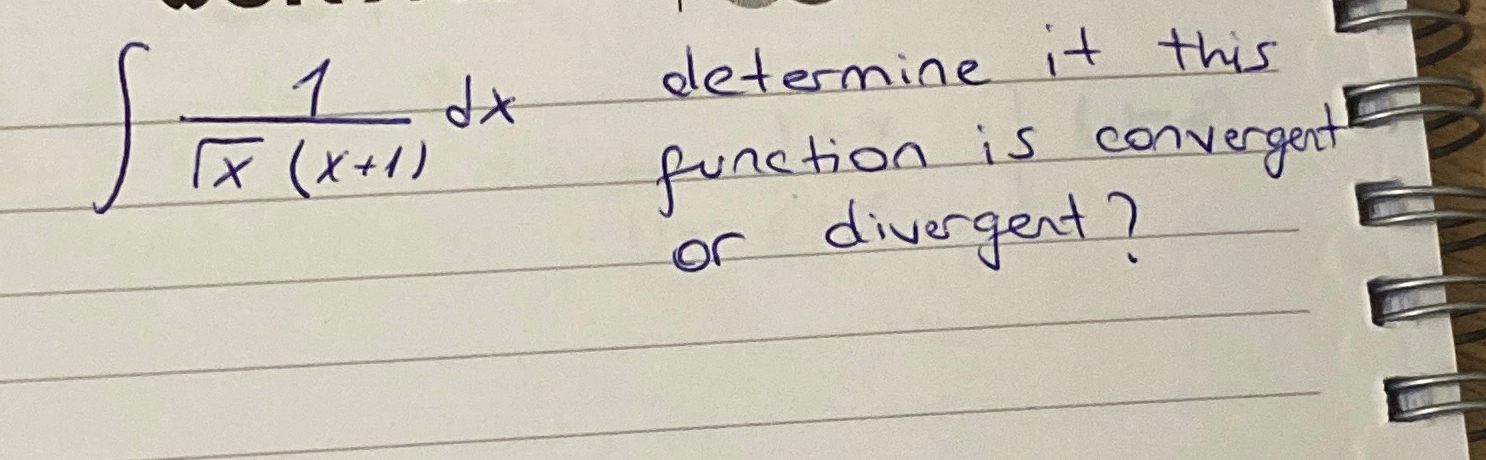 ∫ 1/(√x (x+1)) dx
determine it this
function is convergent
or divergent?